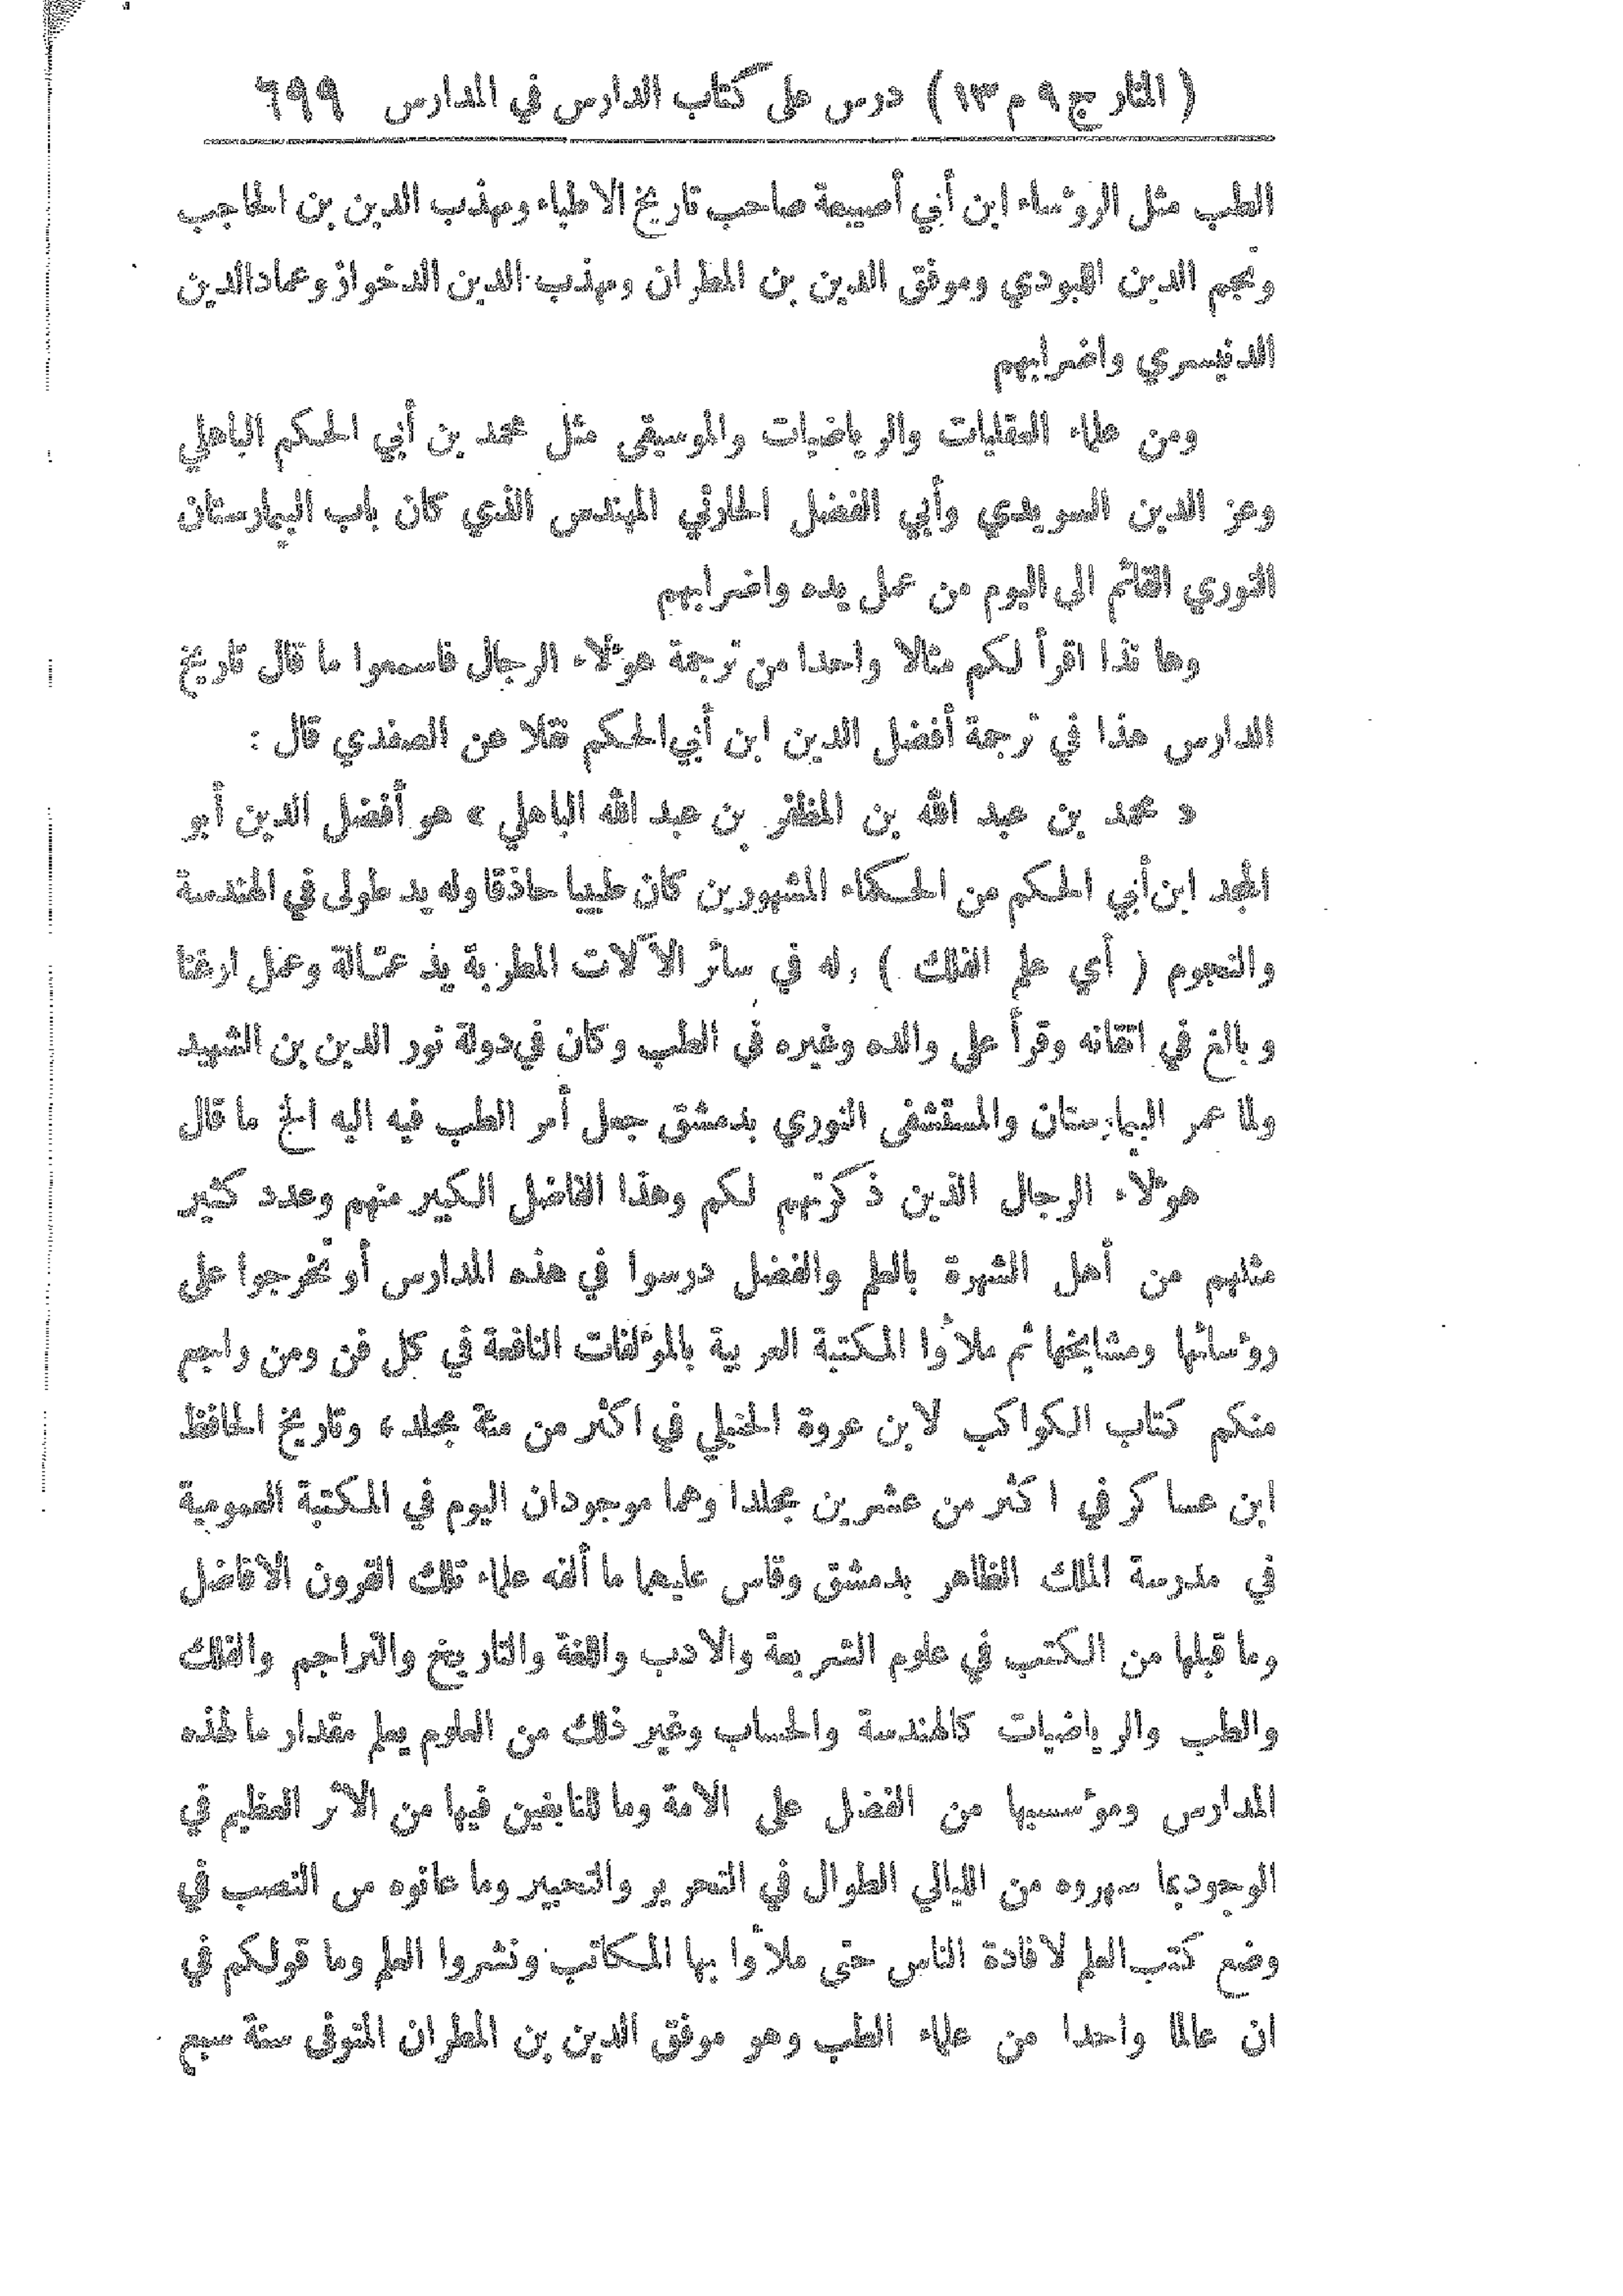 ( المنار ج ٩ م ١٣ ) درس على كتاب الدارس في المدارس ٦٩٩
الطب مثل الرؤساء ابن أبي أصيبعة صاحب تاريخ الاطباء ومهذب الدين بن الحاجب
ونجم الدين اللبودي وموفق الدين بن المطران ومهذب الدين الدخواز وعماد الدين
الدنيسري واضرابهم
ومن علماء العقليات والرياضيات والموسيقى مثل محمد بن أبي الحكم الباهلي
وعز الدين السويدي وأبي الفضل الحارثي المهندس الذي كان باب البيمارستان
النوري القائم الى اليوم من عمل يده واضرابهم
وها نذا اقرأ لكم مثالا واحدا من ترجمة هؤلاء الرجال فاسمعوا ما قال تاريخ
الدارس هذا في ترجمة أفضل الدين ابن أبي الحكم نقلا عن الصفدي قال :
« محمد بن عبد الله بن المظفر بن عبد الله الباهلي » هو أفضل الدين أبو
المجد ابن أبي الحكم من الحكماء المشهورين كان طبيبا حاذقا وله يد طولى في الهندسة
والنجوم ( أي علم الفلك ) وله في سائر الآلات المطربة يد عمالة وعمل ارغنا
وبالغ في اتقانه وقرأ على والده وغيره في الطب وكان في دولة نور الدين بن الشهيد
ولما عمر البيمارستان والمستشفى النوري بدمشق جعل أمر الطب فيه اليه الخ ما قال
هؤلاء الرجال الذين ذكرتهم لكم وهذا الفاضل الكبير منهم وعدد كثير
مثلهم من أهل الشهرة بالعلم والفضل درسوا في هذه المدارس أو تخرجوا على
رؤسائها ومشايخها ثم ملأوا المكتبة العربية بالمؤلفات النافعة في كل فن ومن راجع
منكم كتاب الكواكب لابن عروة الحنبلي في اكثر من مئة مجلد، وتاريخ الحافظ
ابن عساكر في اكثر من عشرين مجلدا وهما موجودان اليوم في المكتبة العمومية
في مدرسة الملك الظاهر بدمشق وقاس عليهما ما ألفه علماء تلك القرون الافاضل
وما قبلها من الكتب في علوم الشريعة والادب واللغة والتاريخ والتراجم والفلك
والطب والرياضيات كالهندسة والحساب وغير ذلك من العلوم يعلم مقدار ما لهذه
المدارس ومؤسسيها من الفضل على الامة وما للنابغين فيها من الاثر العظيم في
الوجود بما سهروه من الليالي الطوال في التحرير والتحبير وما عانوه من النصب في
وضع كتب العلم لافادة الناس حتى ملأوا بها المكاتب ونشروا العلم وما قولكم في
ان عالما واحدا من علماء الطب وهو موفق الدين بن المطران المتوفى سنة سبع